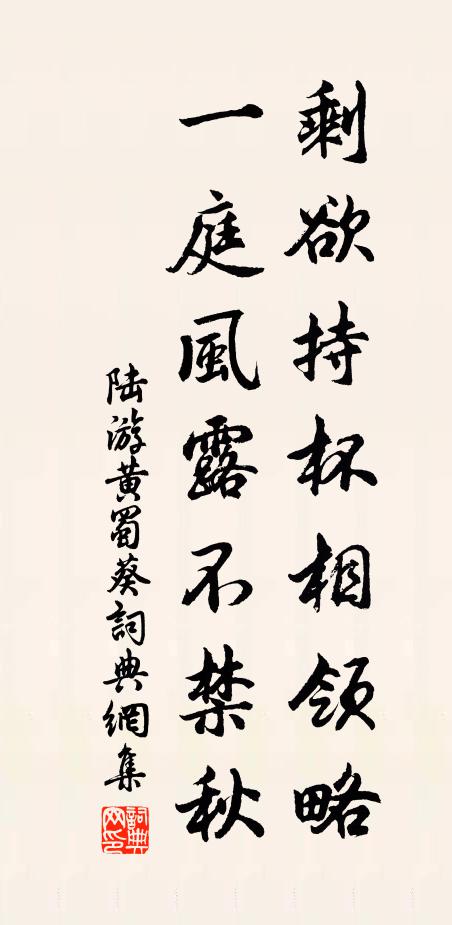 剩欲持杯相領略
一庭風露不禁秋
陆游黄蜀葵詞典網集
詞典網印